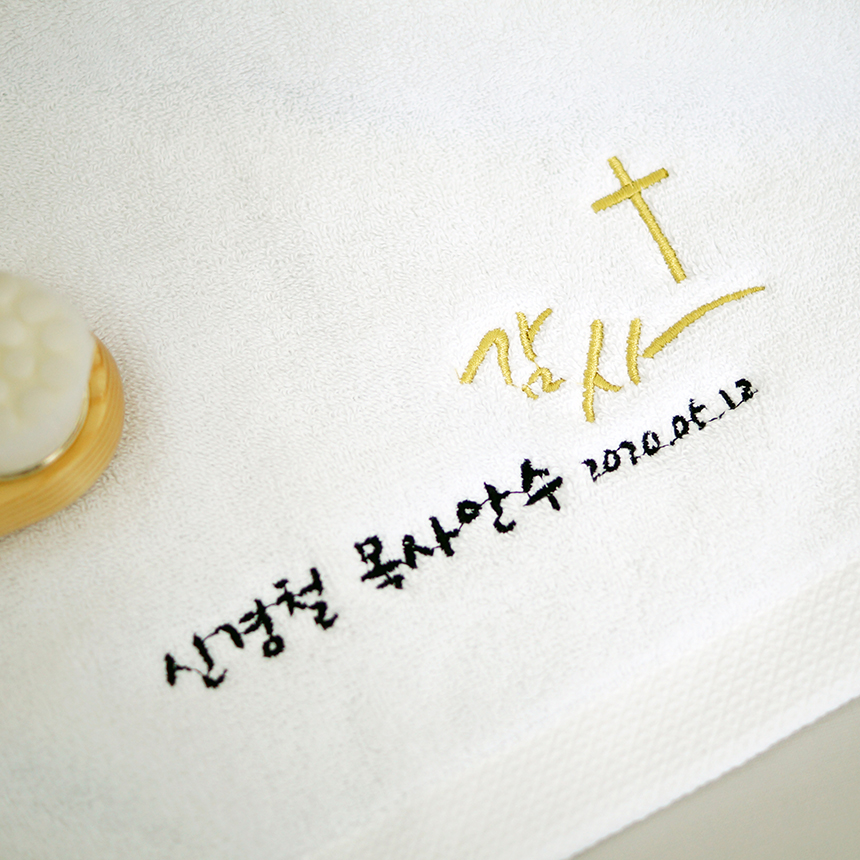 감사
신경철 목사안수 2020.05.12